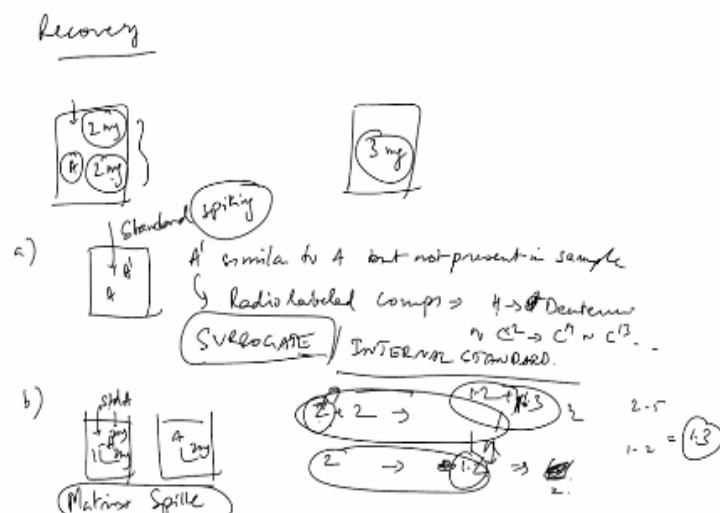 Recovery
2 mg
A 2 mg
3 mg
Standard spiking
a) A A' A' similar to A but not present in sample
Radiolabeled comps => H → Deuterium
~ C12 → C11 ~ C13 ...
SURROGATE / INTERNAL STANDARD.
b) Std A
2 + 2 → 1.2 + 1.3
2.5
A
2mg
2 → 1.2 =>
2.
1.2 = 1.3
Matrix Spike